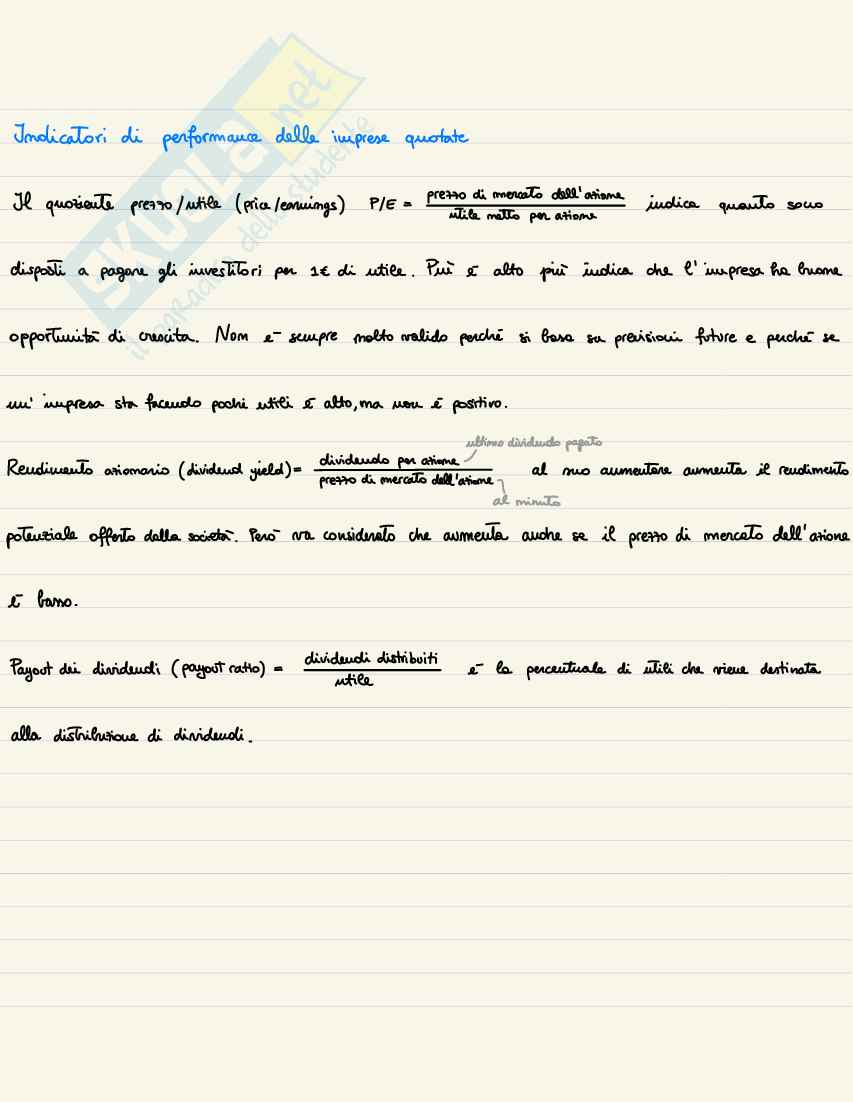 Indicatori di performance delle imprese quotate
Il quoziente prezzo/utile (price/earnings) P/E = prezzo di mercato dell'azione / utile netto per azione indica quanto sono
disposti a pagare gli investitori per 1€ di utile. Più è alto più indica che l'impresa ha buone
opportunità di crescita. Non è sempre molto valido perché si basa su previsioni future e perché se
un'impresa sta facendo pochi utili è alto, ma non è positivo.
ultimo dividendo pagato
Rendimento azionario (dividend yield) = dividendo per azione / prezzo di mercato dell'azione al suo aumentare aumenta il rendimento
al minuto
potenziale offerto dalla società. Però va considerato che aumenta anche se il prezzo di mercato dell'azione
è basso.
Payout dei dividendi (payout ratio) = dividendi distribuiti / utile è la percentuale di utili che viene destinata
alla distribuzione di dividendi.
SKUOLA.net
il paradiso dello studente